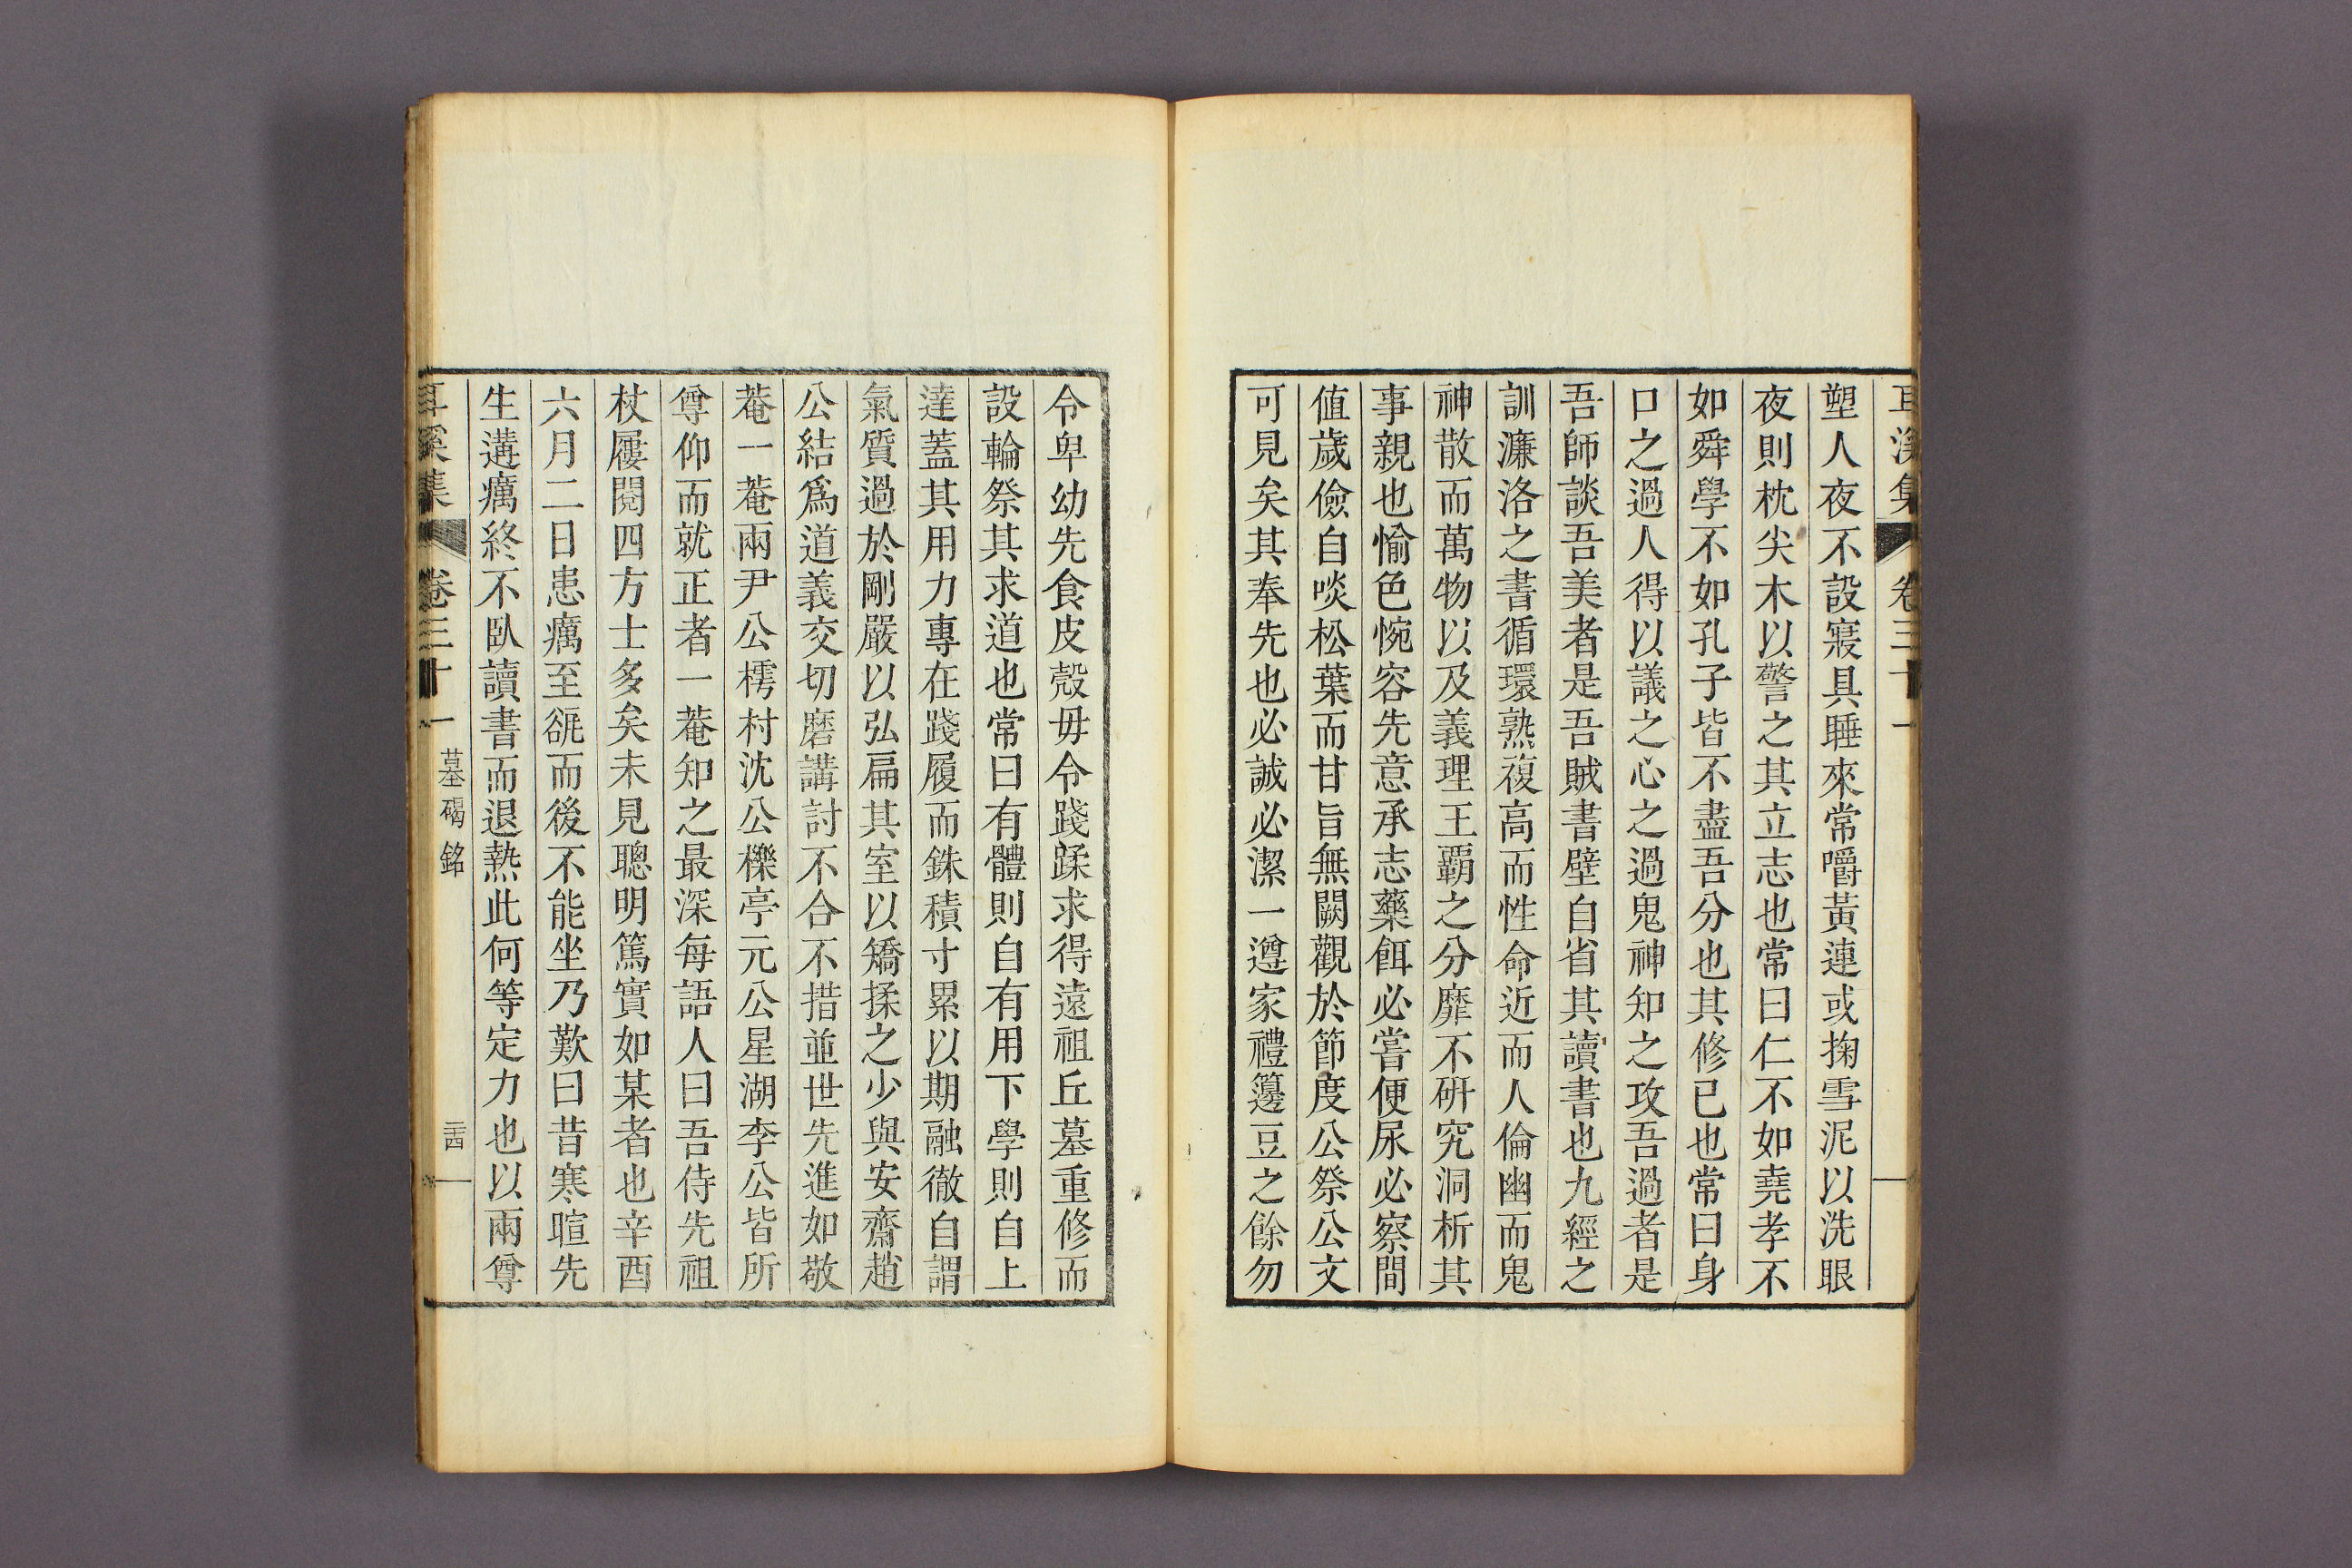 耳溪集 卷三十一
塑人夜不設寢具睡來常嚼黃連或掬雪泥以洗眼
夜則枕尖木以警之其立志也常曰仁不如堯孝不
如舜學不如孔子皆不盡吾分也其修己也常曰身
口之過人得以議之心之過鬼神知之攻吾過者是
吾師談吾美者是吾賊書壁自省其讀書也九經之
訓濂洛之書循環熟複高而性命近而人倫幽而鬼
神散而萬物以及義理王覇之分靡不硏究洞析其
事親也愉色惋容先意承志藥餌必嘗便尿必察間
值歲儉自啖松葉而甘旨無闕觀於節度公祭公文
可見矣其奉先也必誠必潔一遵家禮籩豆之餘勿
令卑幼先食皮殼毋令踐蹂求得遠祖丘墓重修而
設輪祭其求道也常曰有體則自有用下學則自上
達蓋其用力專在踐履而銖積寸累以期融徹自謂
氣質過於剛嚴以弘扁其室以矯揉之少與安齋趙
公結爲道義交切磨講討不合不措並世先進如敬
菴一菴兩尹公樗村沈公櫟亭元公星湖李公皆所
尊仰而就正者一菴知之最深每語人曰吾侍先祖
杖屨閱四方士多矣未見聰明篤實如某者也辛酉
六月二日患癘至𩜾而後不能坐乃歎曰昔寒暄先
生遘癘終不臥讀書而退熱此何等定力也以兩尊
耳溪集 卷三十一 墓碣銘 三四